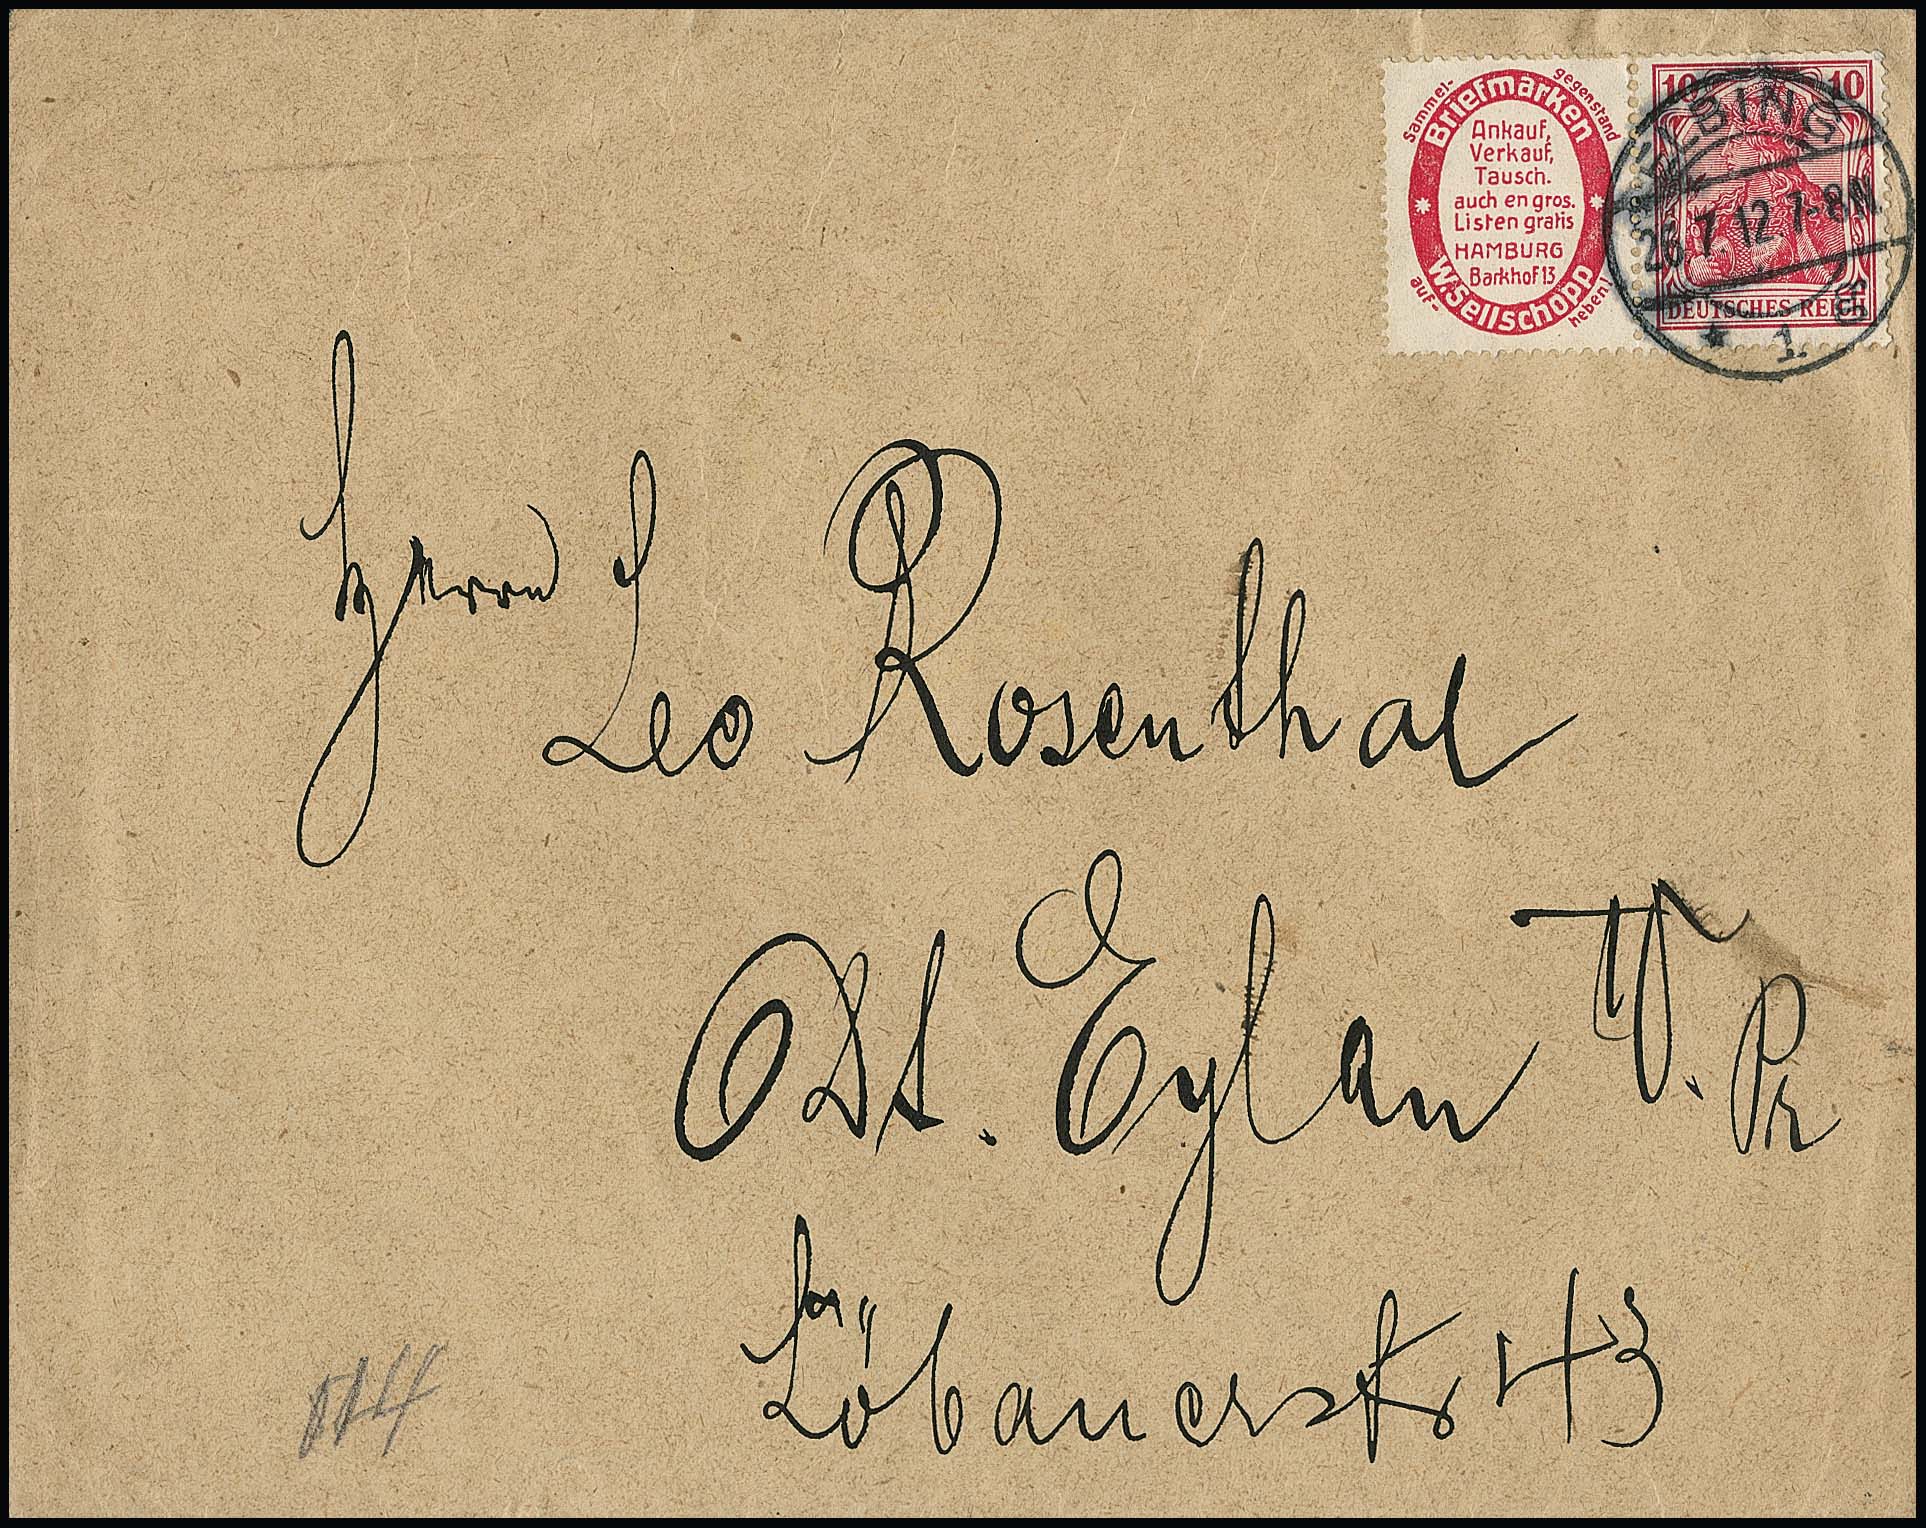 Sammel-
gegenstand
Briefmarken
Ankauf,
Verkauf,
Tausch.
auch en gros.
Listen gratis
HAMBURG
Barkhof 13
W. Sellschopp
auf-
heben!
10 10
DEUTSCHES REICH
ELBING
26.7.12.7-8N
* 1
Herrn
Leo Rosenthal
Dt. Eylau W. Pr
Löbauerstr 43